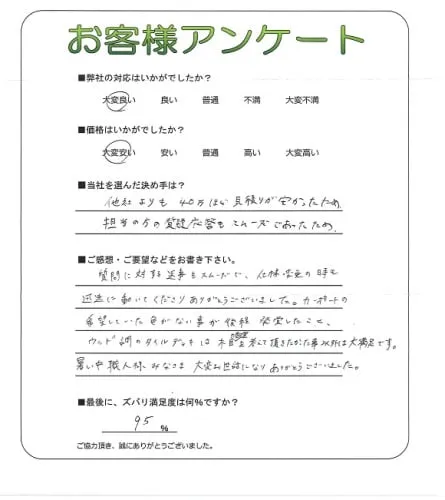 お客様アンケート
■弊社の対応はいかがでしたか？
大変良い 良い 普通 不満 大変不満
■価格はいかがでしたか？
大変安い 安い 普通 高い 大変高い
■当社を選んだ決め手は？
他社よりも 40万ほど見積りが安かったため
担当の方の質疑応答もスムーズであったため
■ご感想・ご要望などをお書き下さい。
質問に対する返事もスムーズで、仕様変更の時も
迅速に動いてくださりありがとうございました。カーポートの
希望していた色がない事が後程 発覚したこと、
ウッド調のタイルデッキは木目を考えて頂きたかった事以外は大満足です。
暑い中職人様みなさま 大変お世話になりありがとうございました。
■最後に、ズバリ満足度は何%ですか？
95 %
ご協力頂き、誠にありがとうございました。